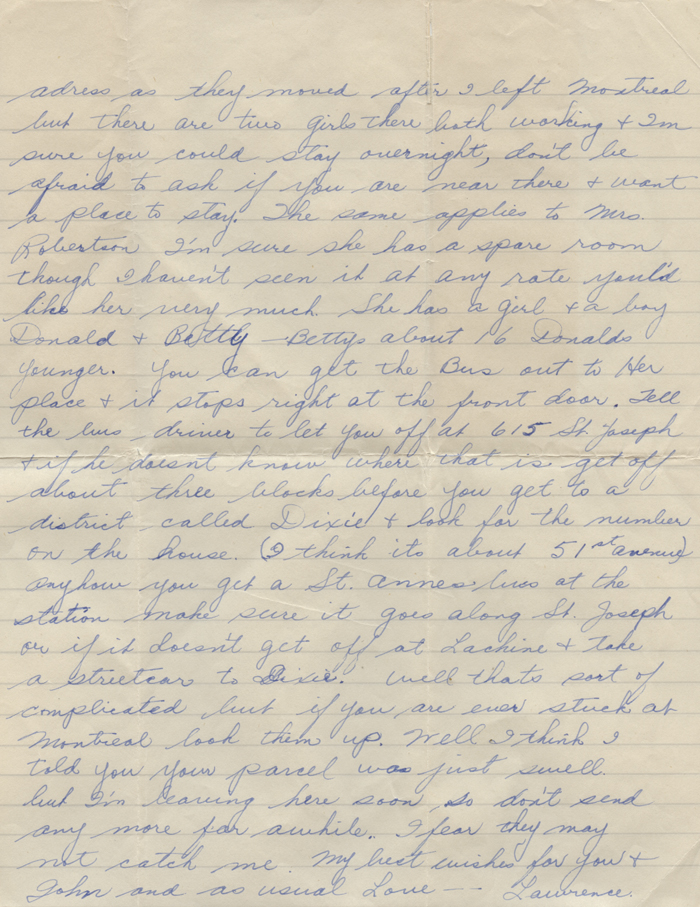 adress as they moved after I left Montreal
but there are two girls there both working + I'm
sure you could stay overnight, don't be
afraid to ask if you are near there + want
a place to stay. The same applies to Mrs.
Robertson I'm sure she has a spare room
though I haven't seen it at any rate you'd
like her very much. She has a girl + a boy
Donald + Betty - Bettys about 16 Donalds
younger. You can get the Bus out to Her
place + it stops right at the front door. Tell
the bus driver to let you off at 615 St. Joseph
+ if he doesnt know where that is get off
about three blocks before you get to a
district called Dixie + look for the number
on the house. (I think its about 51st avenue)
anyhow you get a St. Annes bus at the
station make sure it goes along St. Joseph
or if it doesn't get off at Lachine + take
a streetcar to Dixie. Well thats sort of
complicated but if you are ever stuck at
Montreal look them up. Well I think I
told you your parcel was just swell.
but I'm leaving here soon so don't send
any more for awhile.. I fear they may
not catch me. My best wishes for you +
John and as usual Love -- Lawrence.